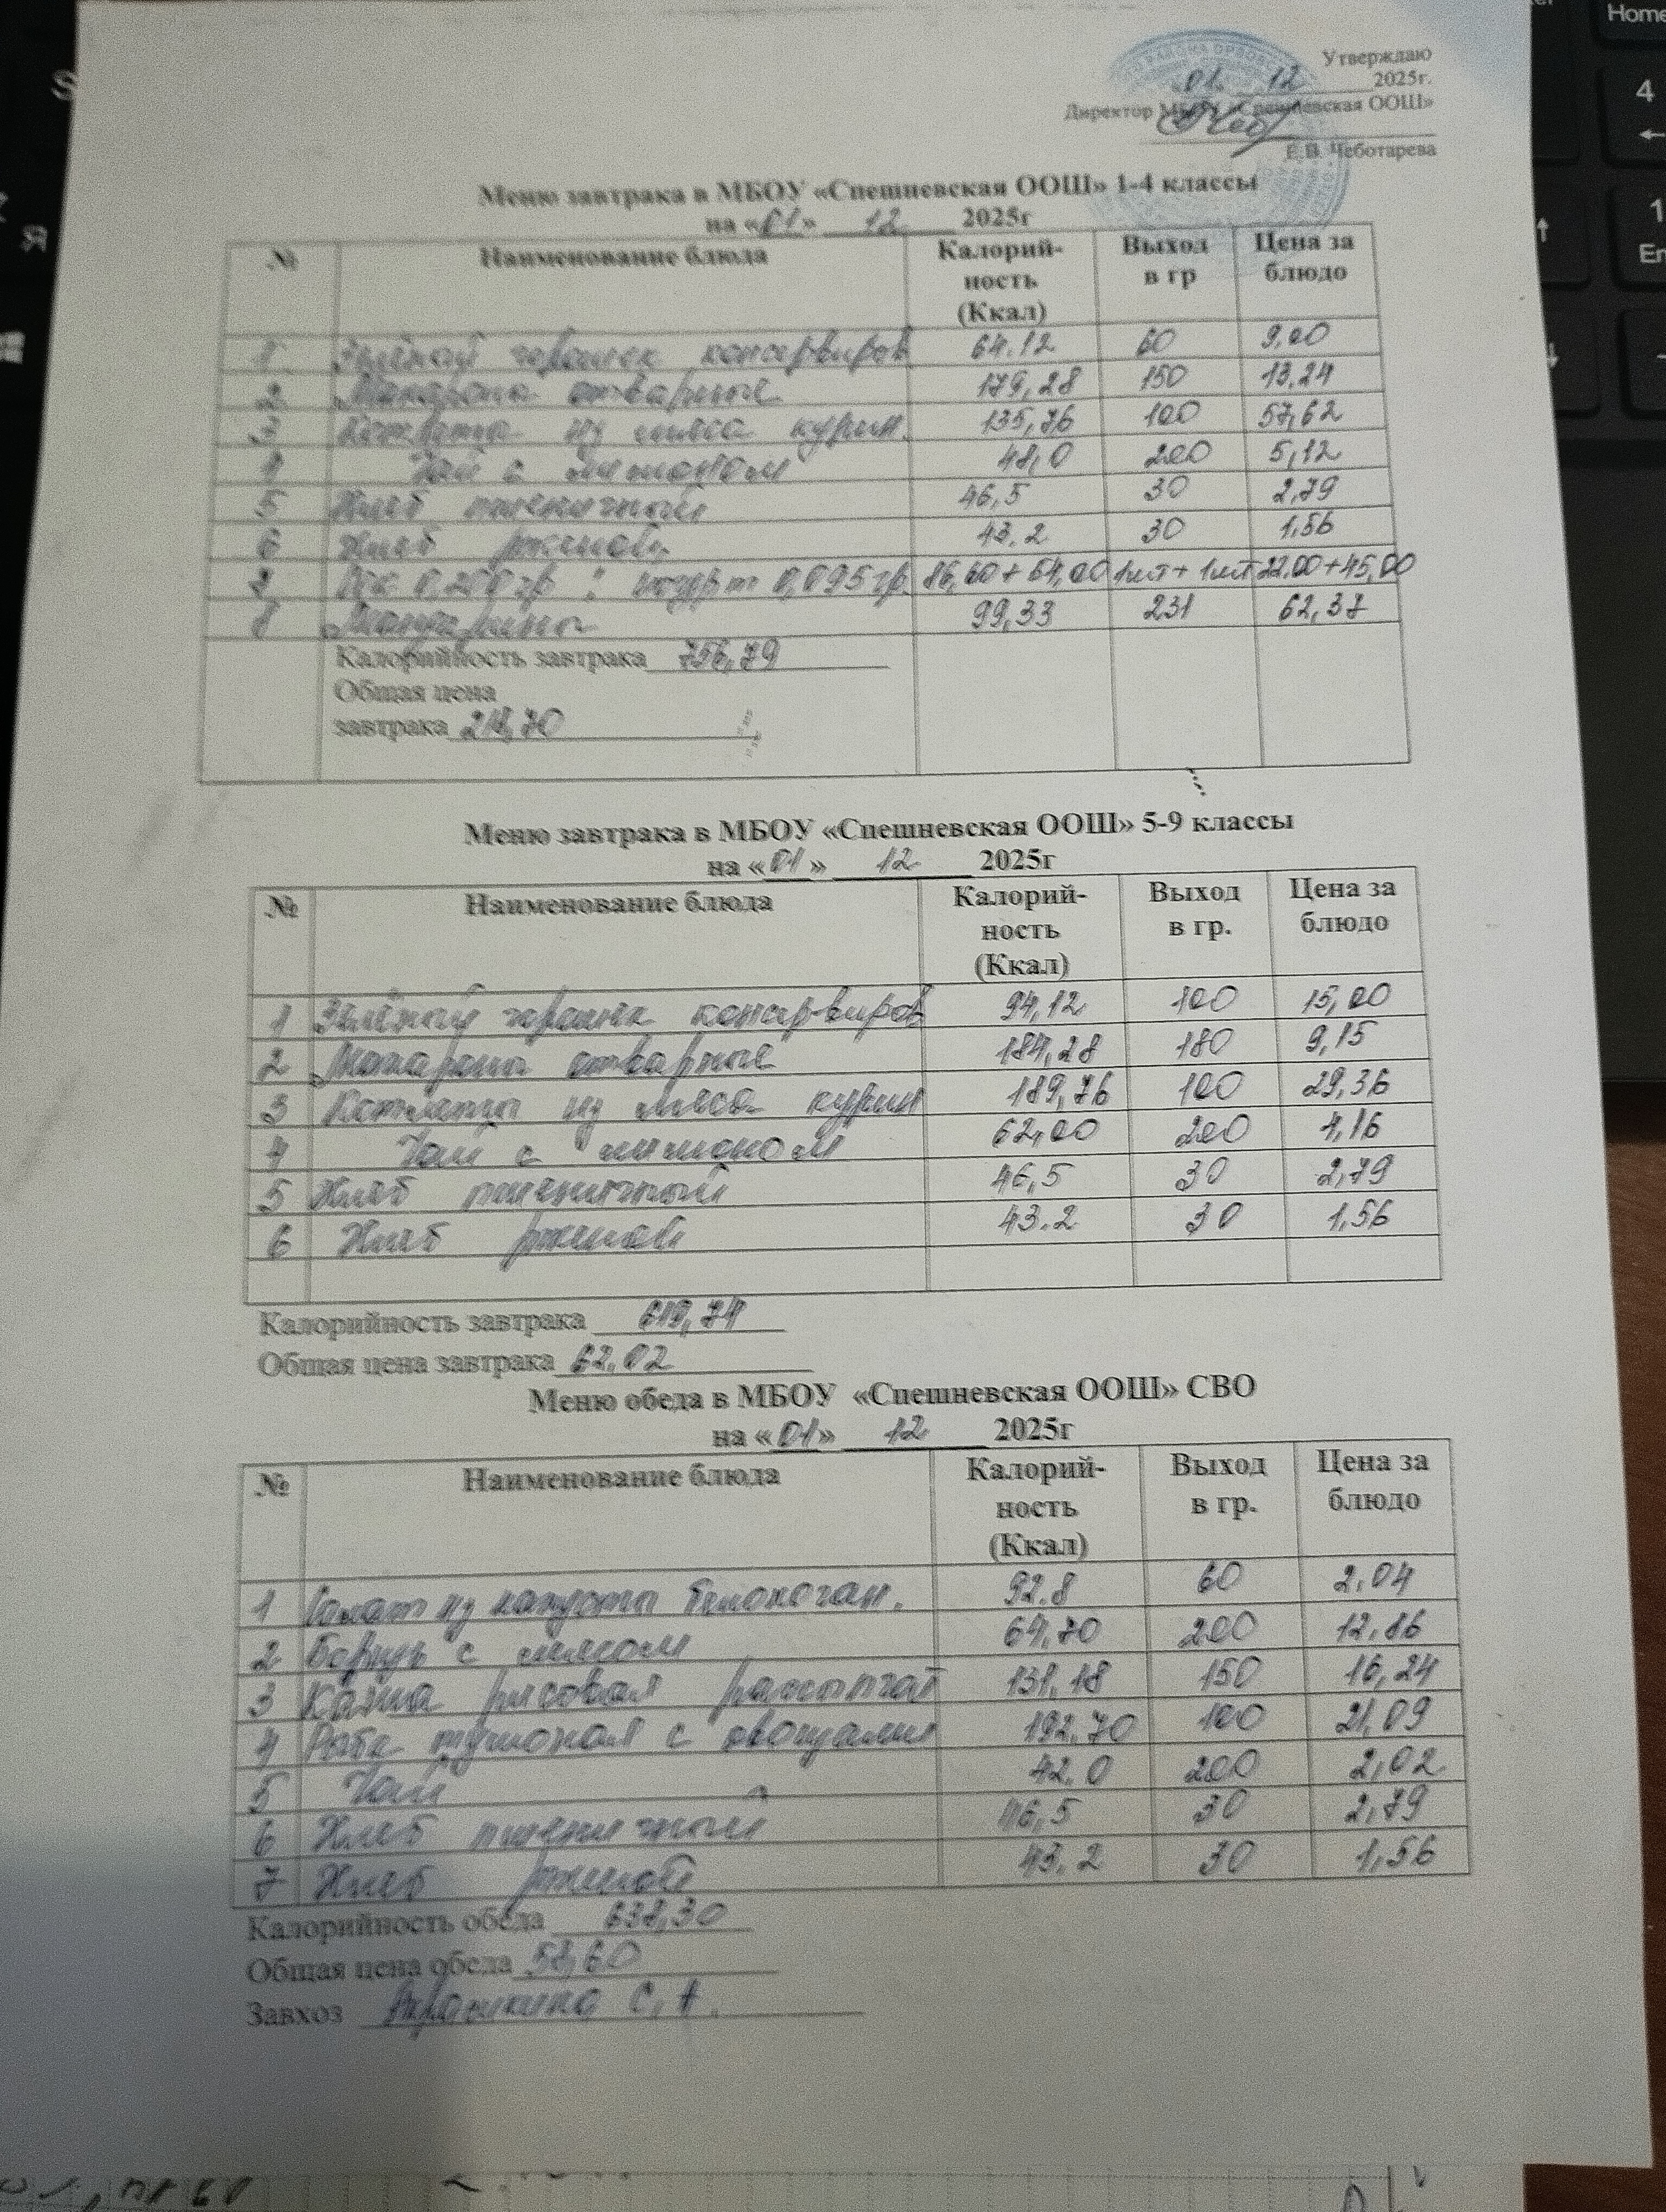 Утверждаю
01. 12 2025г.
Директор МБОУ «Спешневская ООШ»
Е.В. Чеботарева
Меню завтрака в МБОУ «Спешневская ООШ» 1-4 классы
на «01» 12 2025г
№ Наименование блюда Калорий-ность (Ккал) Выход в гр Цена за блюдо
1 Зелёный горошек консервиров 64.12 60 9,00
2 Макароны отварные 179,28 150 13,24
3 Котлеты из мяса курин. 135,76 100 57,62
4 Чай с лимоном 48,0 200 5,12
5 Хлеб пшеничный 46,5 30 2,79
6 Хлеб ржаной 43.2 30 1,56
7 Сок 0,200 гр. йогурт 0,095 гр. 86,60+54,00 1шт+1шт 22,00+45,00
8 Мандарины 99,33 231 62,37
Калорийность завтрака 756,79
Общая цена
завтрака 218,70
Меню завтрака в МБОУ «Спешневская ООШ» 5-9 классы
на «01» 12 2025г
№ Наименование блюда Калорий-ность (Ккал) Выход в гр. Цена за блюдо
1 Зелёный горошек консервиров 94,12 100 15,00
2 Макароны отварные 184,28 180 9,15
3 Котлеты из мяса курин 189,76 100 29,36
4 Чай с лимоном 62,00 200 4,16
5 Хлеб пшеничный 46,5 30 2,79
6 Хлеб ржаной 43.2 30 1,56
Калорийность завтрака 619,74
Общая цена завтрака 62.02
Меню обеда в МБОУ «Спешневская ООШ» СВО
на «01» 12 2025г
№ Наименование блюда Калорий-ность (Ккал) Выход в гр. Цена за блюдо
1 Салат из капусты белокочан. 92.8 60 2,04
2 Борщ с мясом 64,70 200 12,86
3 Каша рисовая рассыпчат 131,18 150 16,24
4 Рыба тушоная с овощами 192,70 100 21,09
5 Чай 42.0 200 2,02
6 Хлеб пшеничный 46,5 30 2,79
7 Хлеб ржаной 43.2 30 1,56
Калорийность обеда 638,30
Общая цена обеда 58,60
Завхоз С.А.
Home
4
1